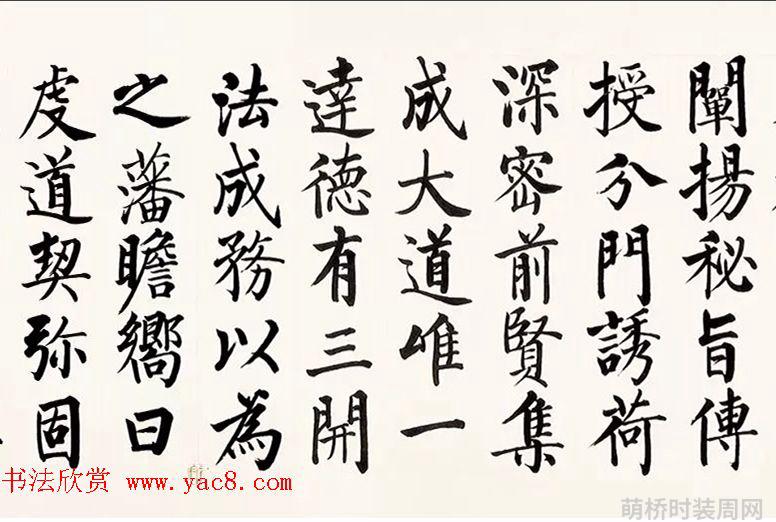 闡揚秘旨傳
授分門誘荷
深密前賢集
成大道唯一
達德有三開
法成務以為
之藩瞻嚮日
虔道契弥固
书法欣赏 www.yac8.com
萌桥时装周网